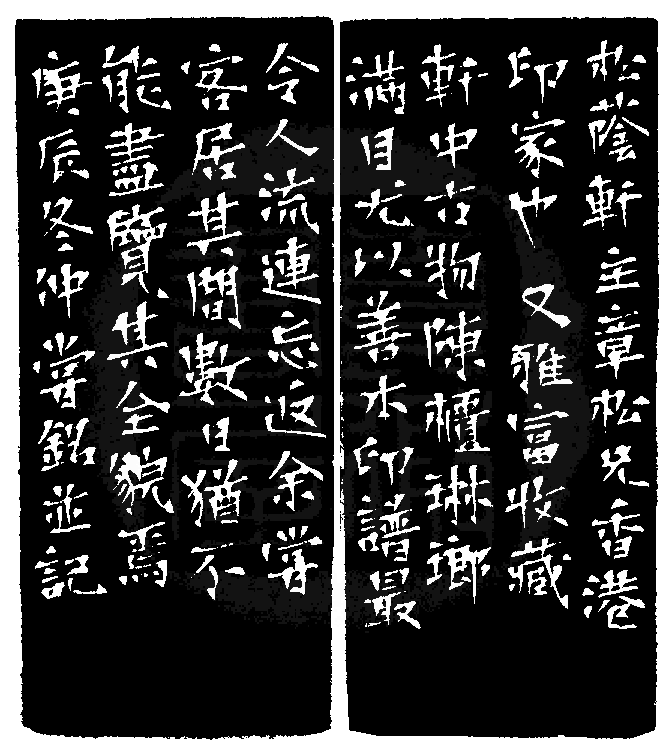 松蔭軒主章松兄香港
印家也 又雅富收藏
軒中古物陳櫃琳瑯
滿目尤以善本印譜最
令人流連忘返余嘗
客居其間數日猶不
能盡覽其全貌焉
庚辰冬仲嘗銘並記